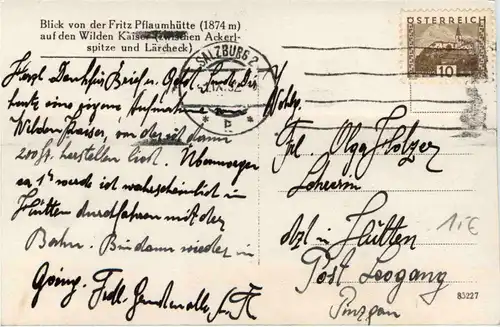 Blick von der Fritz Pflaumhütte (1874 m)
auf den Wilden Kaiser (zwischen Ackerl-
spitze und Lärcheck)
ÖSTERREICH
10
SALZBURG 2
Herzl. Dank für Brief u.
heute eine eigene Aufnahme
Wilden Kaiser, von der ich dann
200 St. herstellen ließ. Übermorgen
ca 1h werde ich wahrscheinlich in
Hütten durchfahren mit der
Bahn. Bin dann wieder in
Going. Frdl.
Wohlg.
Frl Olga Holzer
dzt in Hütten
Post Leogang
Pinzgau
1.-€
83227